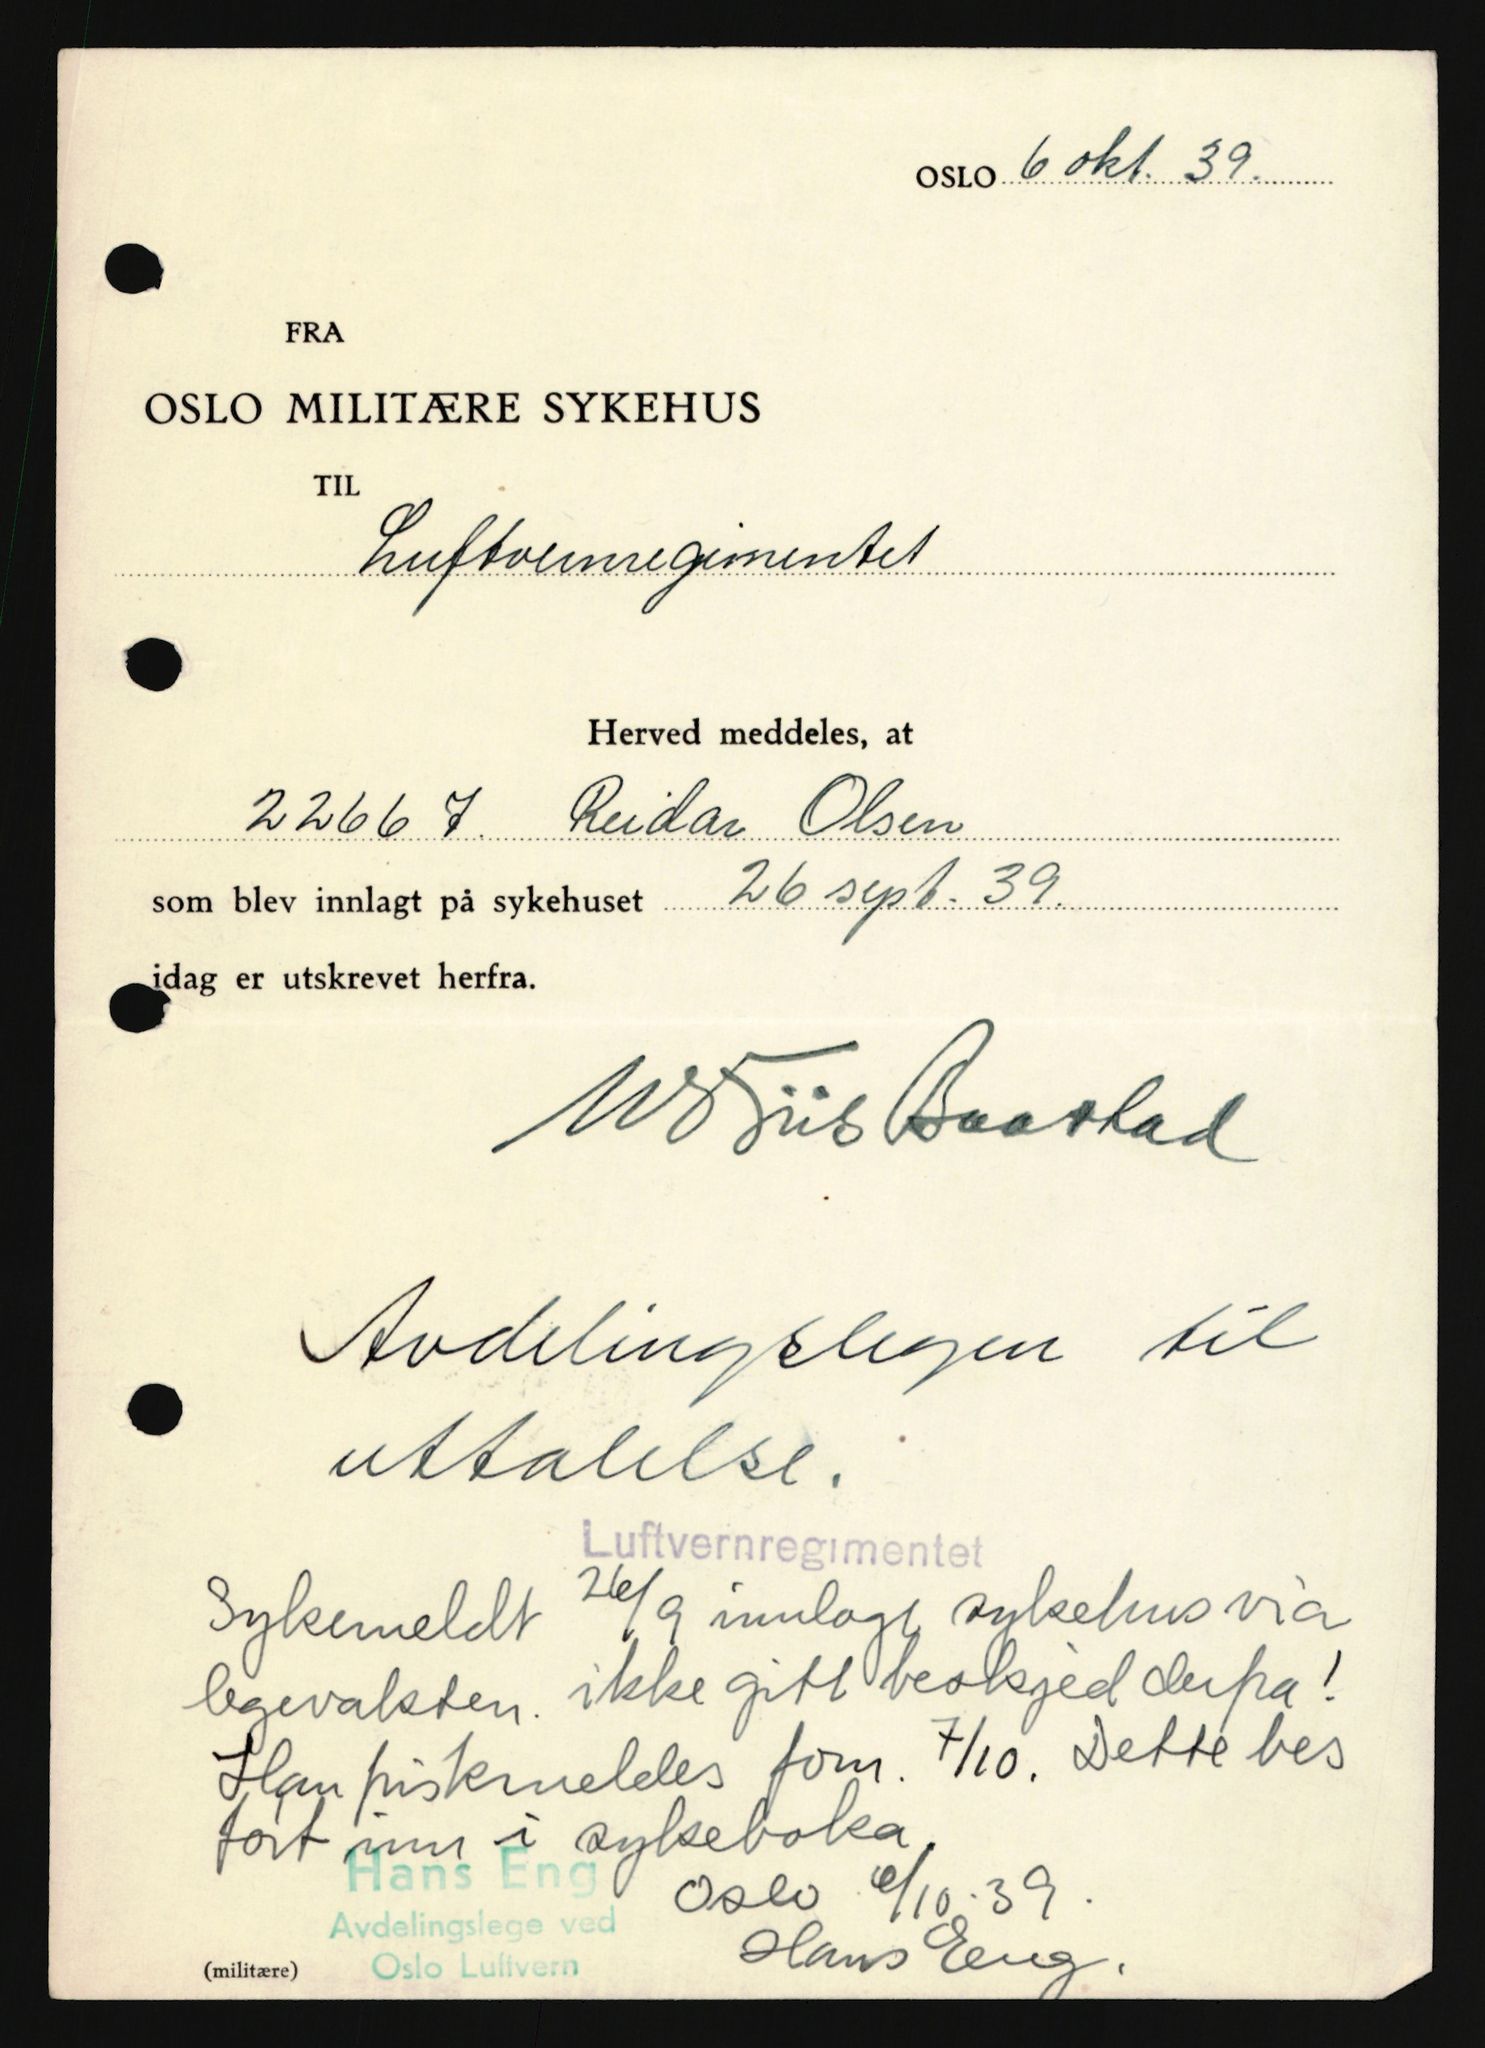 OSLO 6 okt. 39.
FRA
OSLO MILITÆRE SYKEHUS
TIL
Luftvernregimentet
Herved meddeles, at
22667. Reidar Olsen
som blev innlagt på sykehuset 26 sept. 39.
idag er utskrevet herfra.
Friis Baastad
Avdelingslegen til
uttalelse.
Luftvernregimentet
Sykemeldt 26/9 innlagt sykehus via
legevakten. ikke gitt beskjed derpa!
Han friskmeldes fom. 7/10. Dette bes
ført inn i sykeboka.
Oslo 6/10.39.
Hans Eng.
Hans Eng
Avdelingslege ved
Oslo Luftvern
(militære)